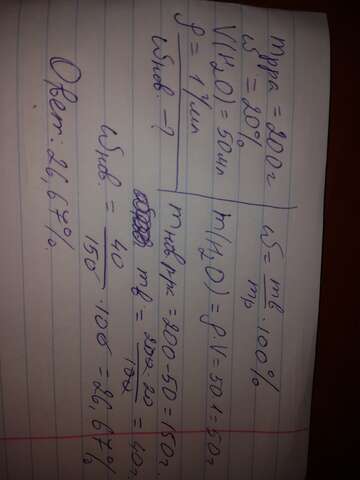 mр-ра = 200 г
w = 20%
V(H₂O) = 50 мл
ρ = 1 г/мл
wнов. - ?
w = mв/mр · 100%
m(H₂O) = ρ·V = 50·1 = 50 г
mнов р-к = 200-50 = 150 г.
mв = 200·20/100 = 40 г.
wнов. = 40/150 · 100 = 26,67%
Ответ: 26,67%.